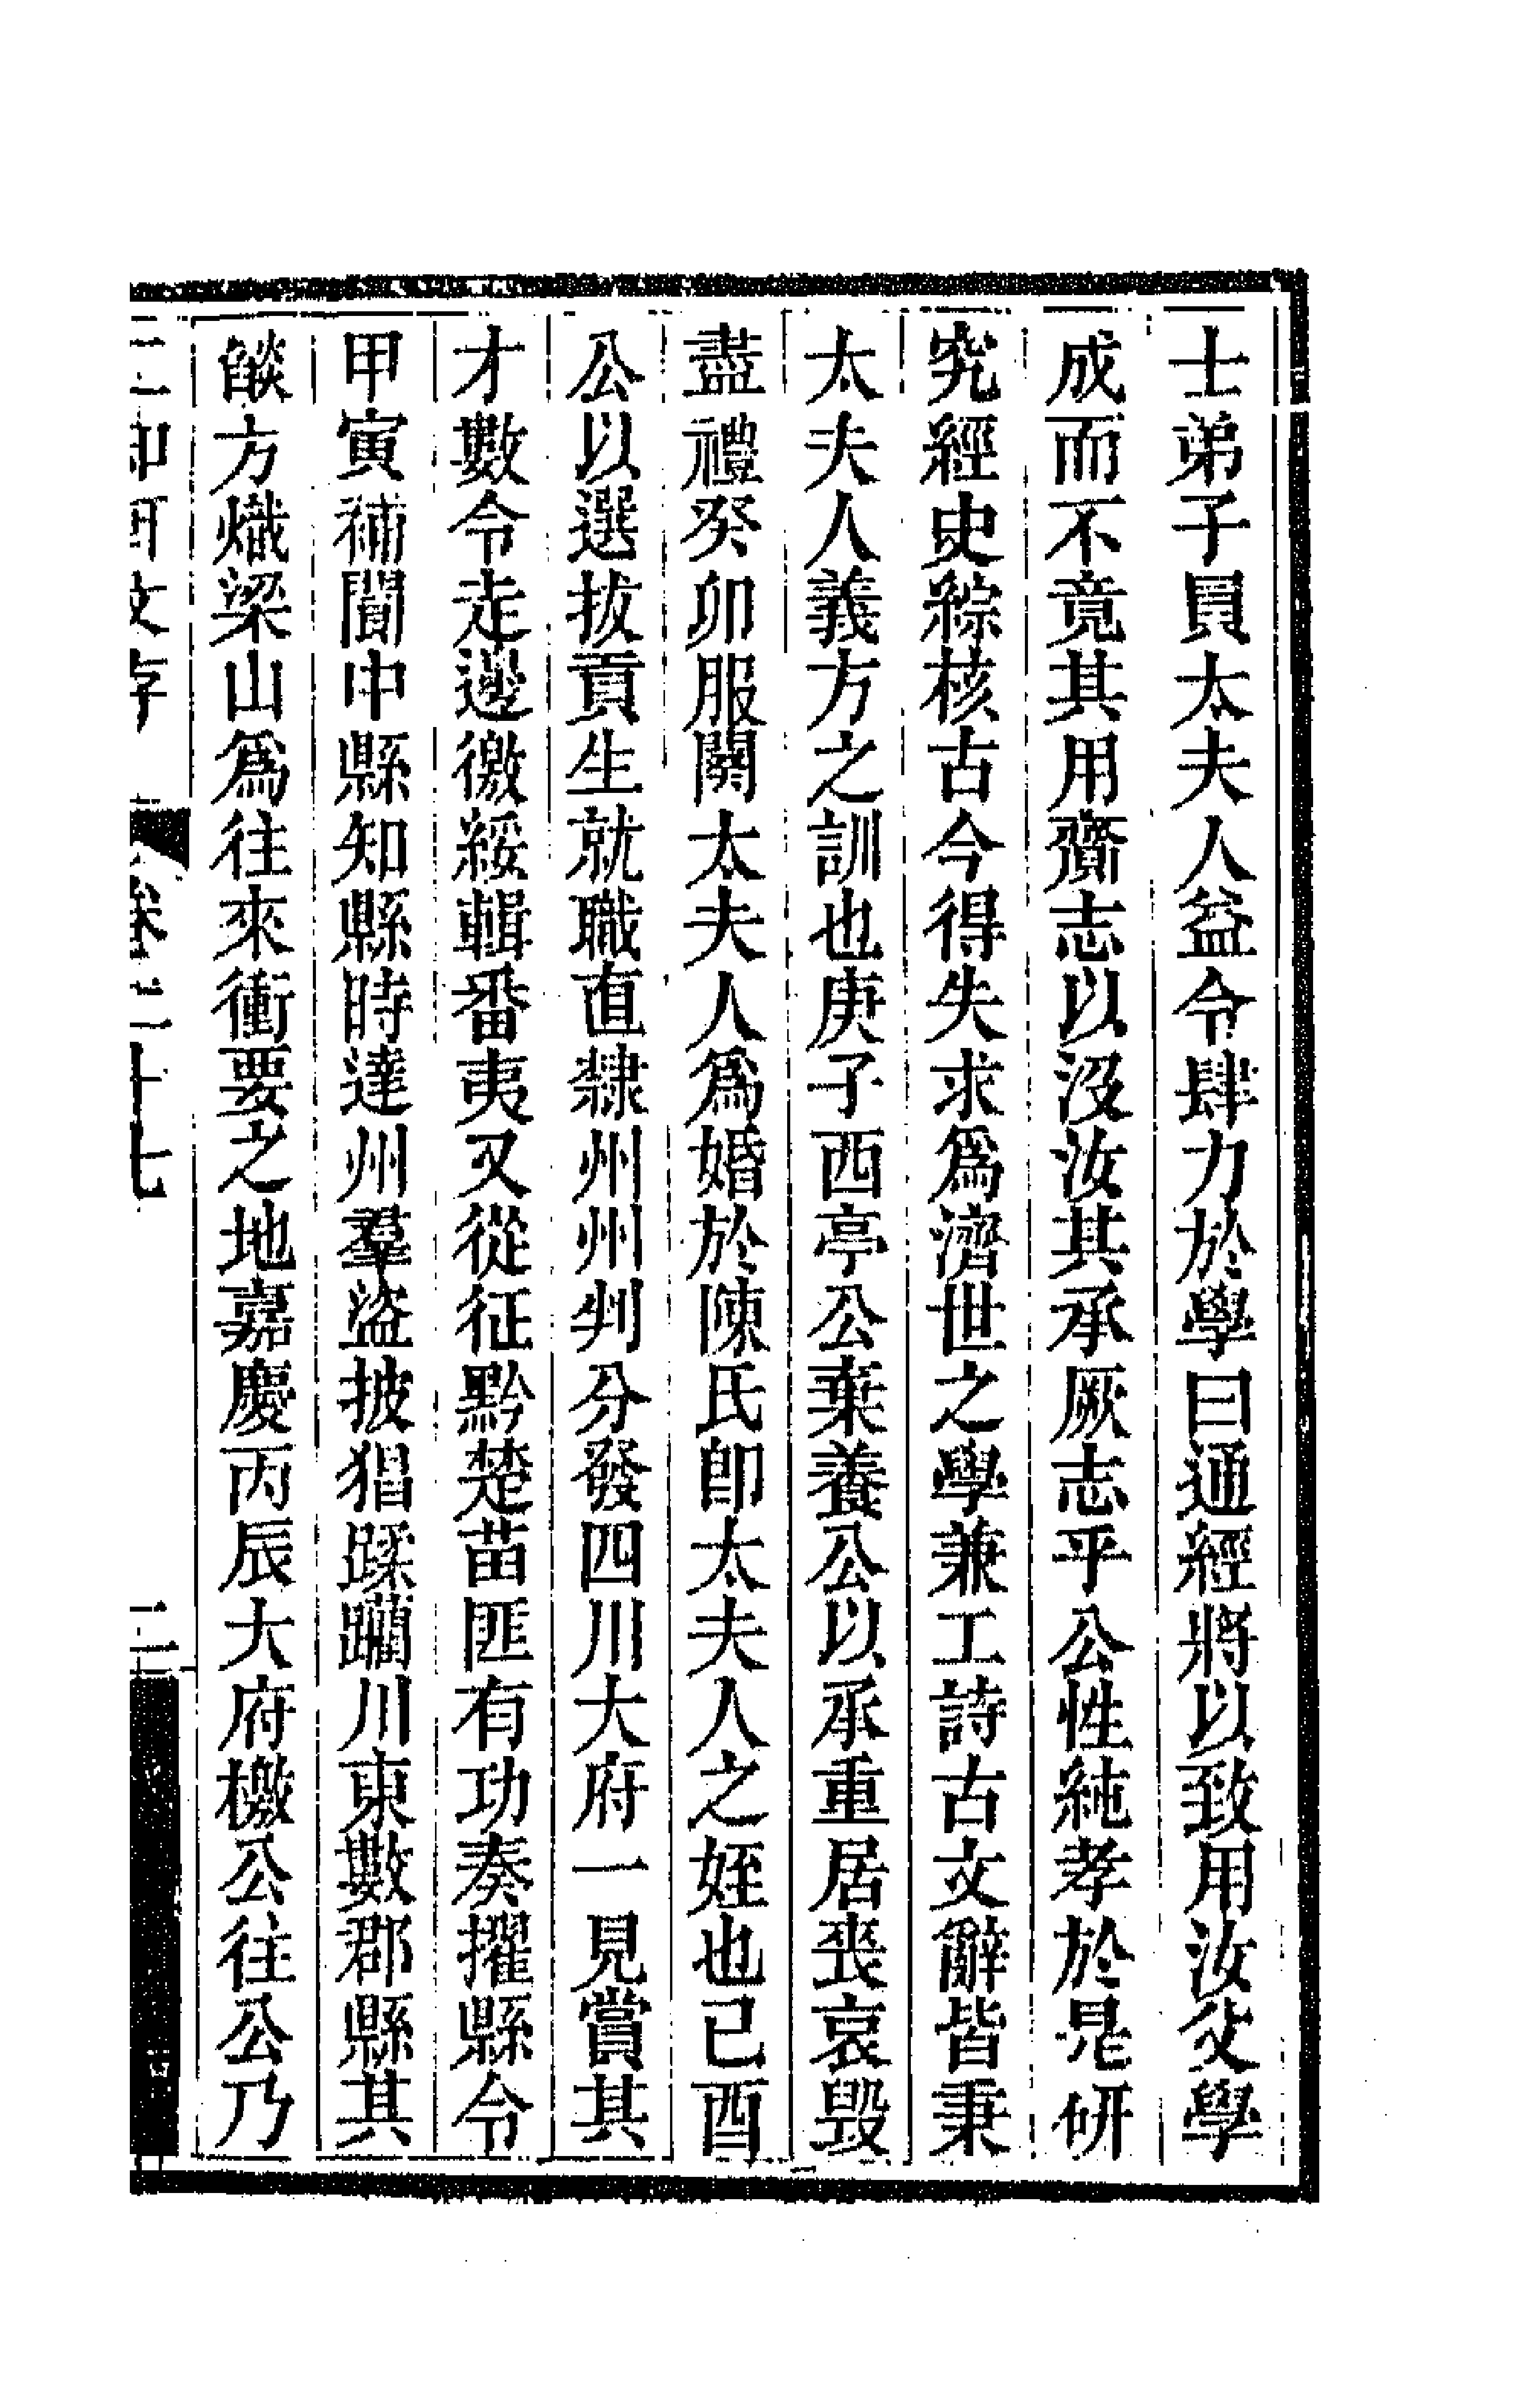 士弟子員太夫人益令肆力於學曰通經將以致用汝父學
成而不竟其用齎志以沒汝其承厥志乎公性純孝於是研
究經史綜核古今得失求爲濟世之學兼工詩古文辭皆秉
太夫人義方之訓也庚子西亭公棄養公以承重居喪哀毀
盡禮癸卯服闋太夫人爲婚於陳氏卽太夫人之姪也己酉
公以選拔貢生就職直隸州州判分發四川大府一見賞其
才數令走邊徼綏輯番夷又從征黔楚苗匪有功奏擢縣令
甲寅補閬中縣知縣時達州羣盜披猖蹂躪川東數郡縣其
燄方熾梁山爲往來衝要之地嘉慶丙辰大府檄公往公乃
卷二十七
二